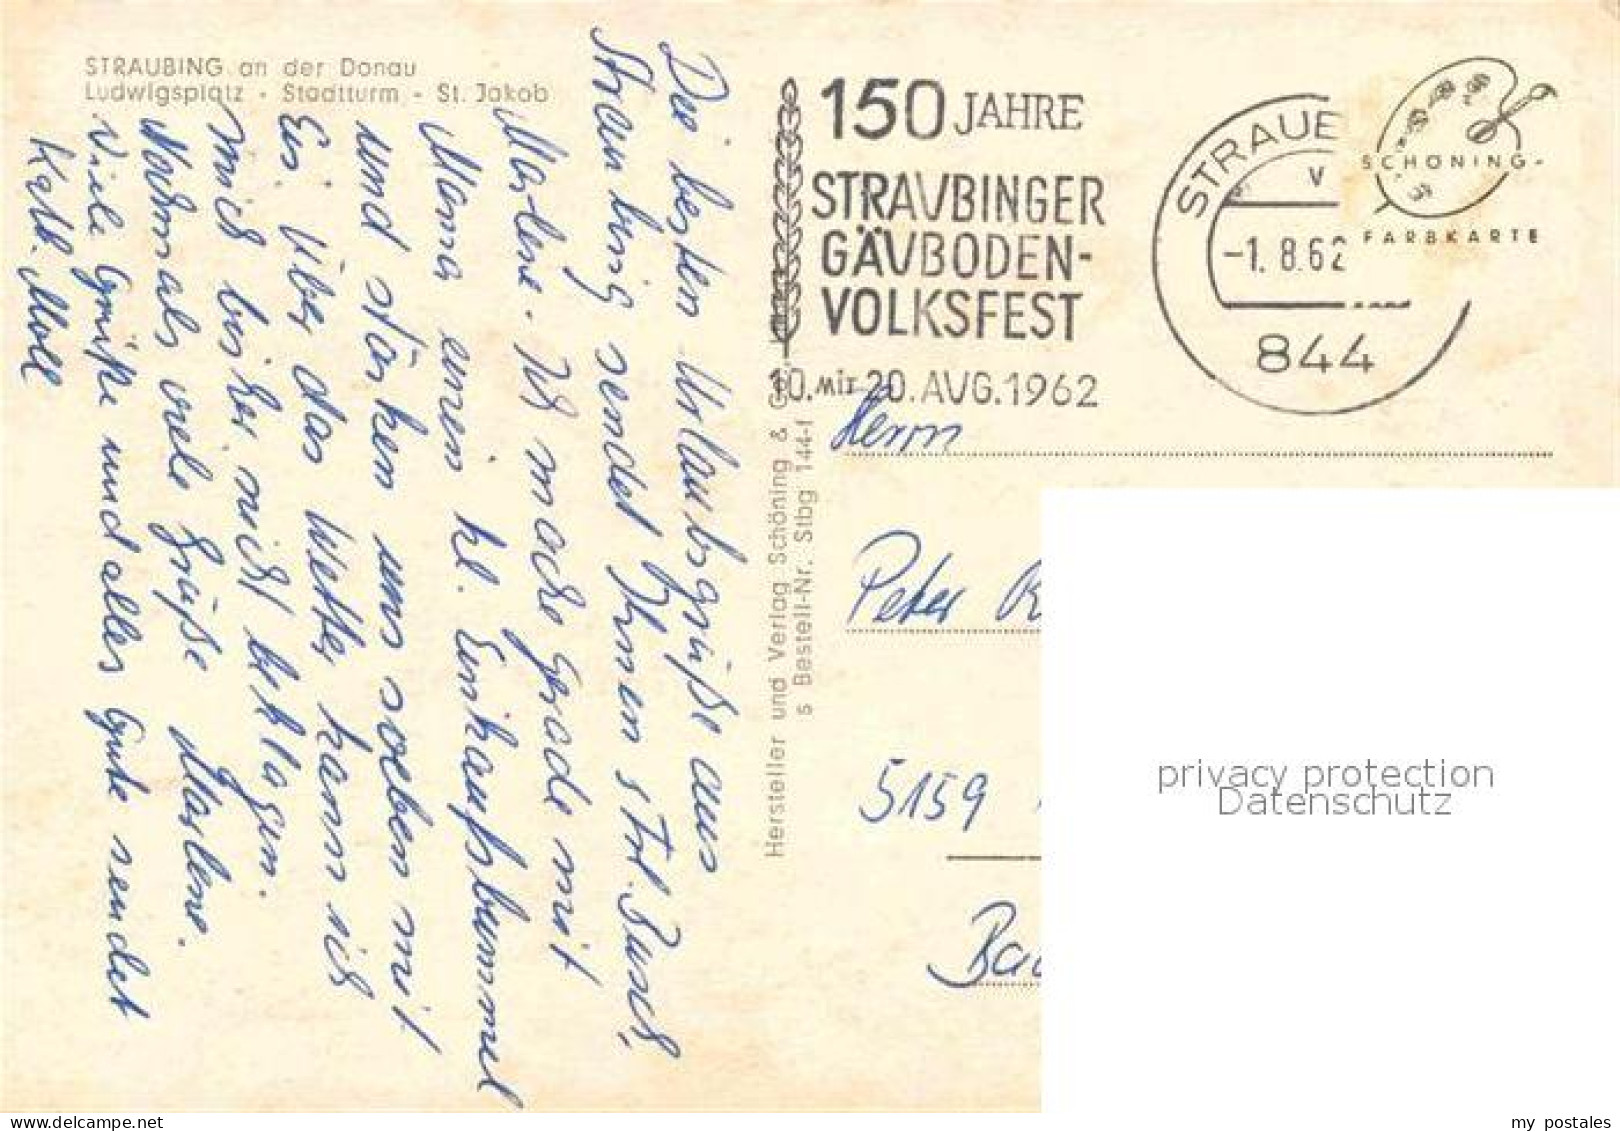 STRAUBING an der Donau
Ludwigsplatz - Stadtturm - St. Jakob
150 JAHRE
STRAUBINGER
GÄUBODEN-
VOLKSFEST
10. MIT 20. AUG. 1962
STRAUB
v
-1. 8. 62
844
SCHÖNING-
FARBKARTE
Hersteller und Verlag Schöning &
s Bestell-Nr. Stbg 144-f
Die besten Urlaubsgrüße aus
Straubing sendet Ihnen
Marlene. Ich mache grade mit
Mama einen kl. Einkaufsbummel
und stärken uns soeben mit
Eis. Über das Wetter kann ich
mich bisher nicht beklagen.
Nochmals viele Grüße Marlene.
Viele Grüße und alles Gute sendet
Kath. Moll
Herrn
Peter
5159
privacy protection
Datenschutz
my postales